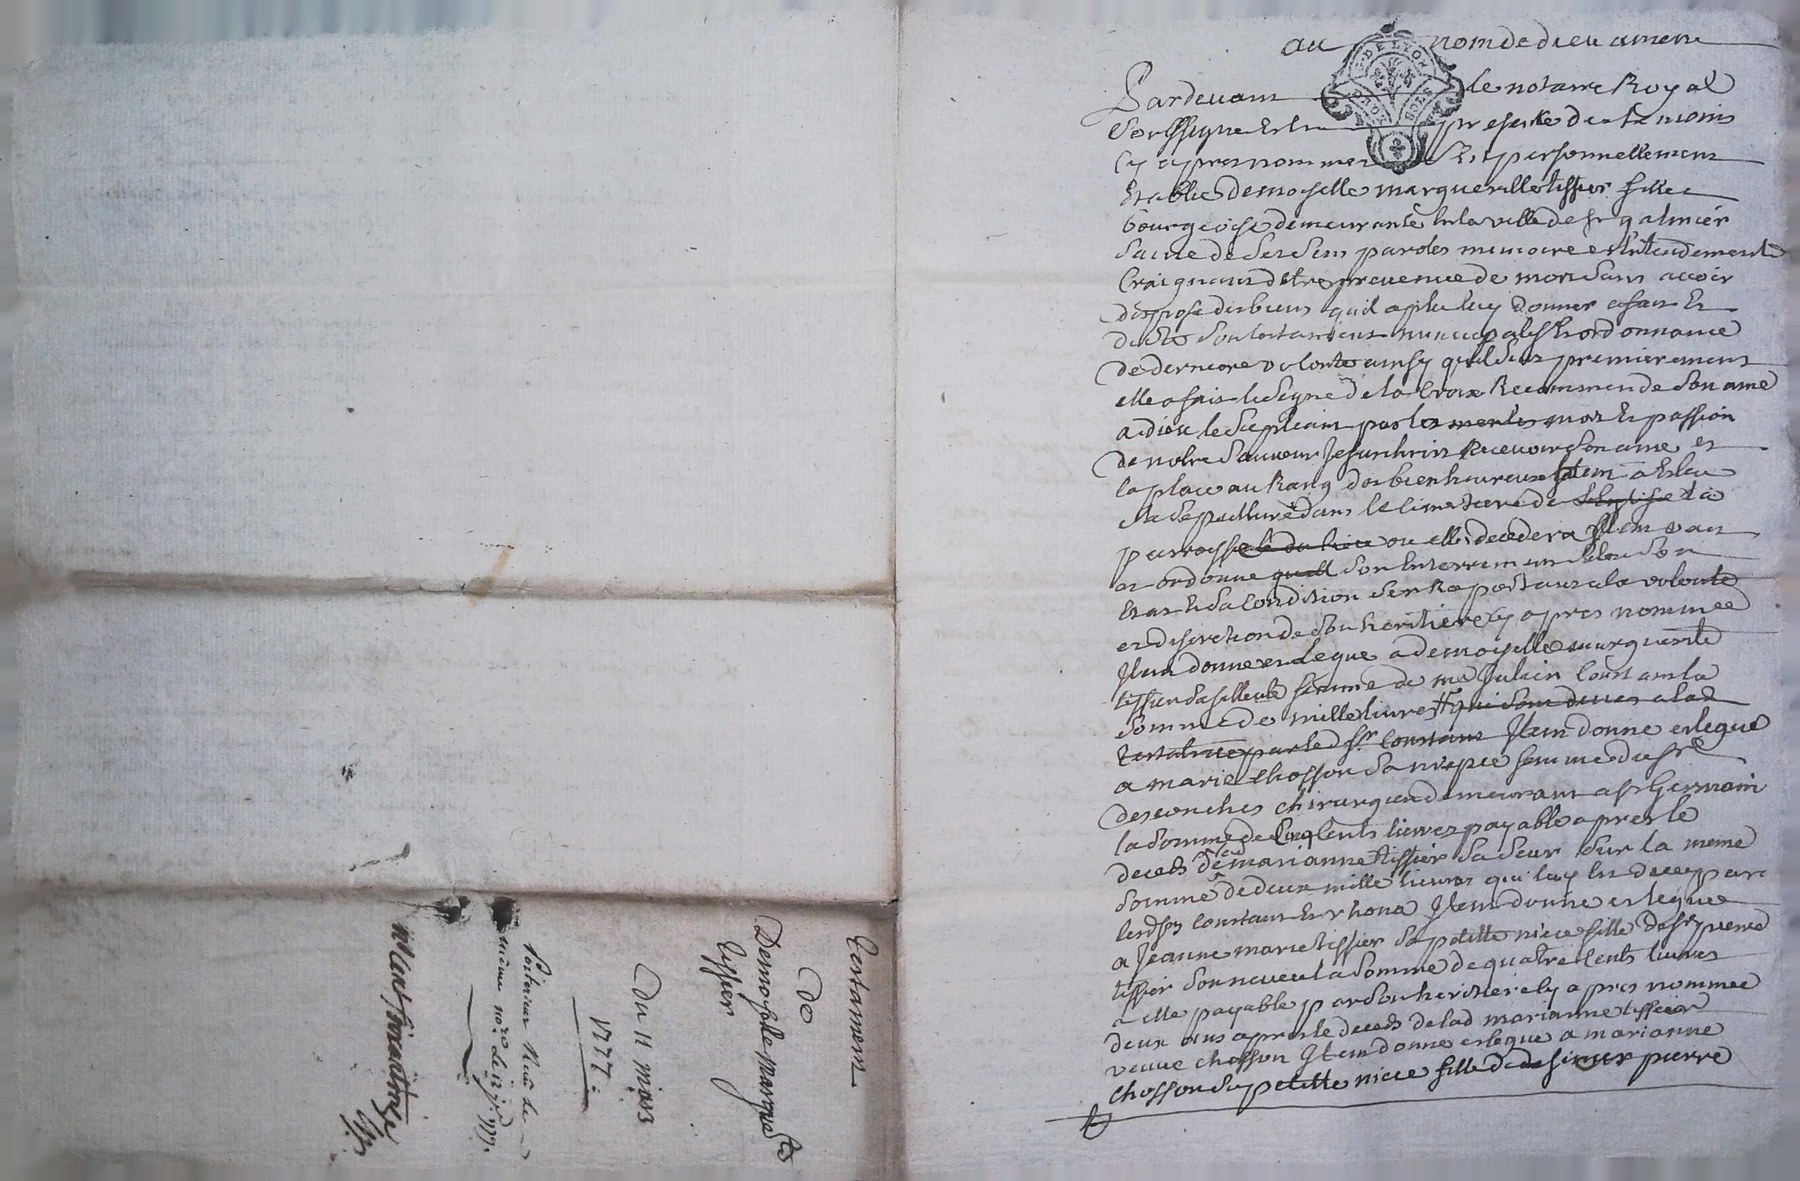 au nom de dieu amen
Pardevant le notaire Royal
Soussigne Et En presence des temoins
Cy apres nommes Est personnellement
Establie demoyselle marguerille tissier fille
bourgeoise demeurante En la ville de st galmier
Saine de ses sens paroles memoire et Entendement
Craignant detre prevenue de mort sans avoir
dispose des biens quil a plu luy donner a fait Et
dicte son testament nuncupatif Et ordonnance
de derniere volonte ainsy quil suit premierement
elle a fait le signe de la Croix Recommende son ame
a dieu le supliant par les merites mort Et passion
de notre Sauveur Jesus christ Recevoir son ame et
la place au Rang des bienheureux Item a Esleu
sa sepullure dans le cimetiere de leglise la
parroisse ou elle decedera Item veut
et ordonne quil son Enterrement selon son
Etat Et sa Condition sen Raportant a la volonté
et discretion de son heritiere cy apres nommée
Item donne et legue a demoyselle marguerite
tissier sa filleule femme de me Julien Constant la
somme de mille livres qui sont dues a lad
testatrice par led sr Constant Item donne et legue
a marie Chosson sa niepce femme du sr
desconches chirurgien demeurant a st Germain
la somme de Cinq Cents livres payable apres le
deceds de marianne tissier sa seur sur la meme
somme de deux mille livres qui luy Est deue par
lesd srs Constant Et rhona Item donne et legue
a Jeanne marie tissier sa petitte niece fille de sr pierre
tissier son neveu la somme de quatre Cents livres
a elle payable par son heritiere cy apres nommee
deux ans apres le deceds de lad marianne tissier
veuve chosson Item donne et legue a marianne
chosson sa petitte niece fille de sieur pierre
Testament
de
Demoyselle marguerite
tissier
Du 11 mars
1777